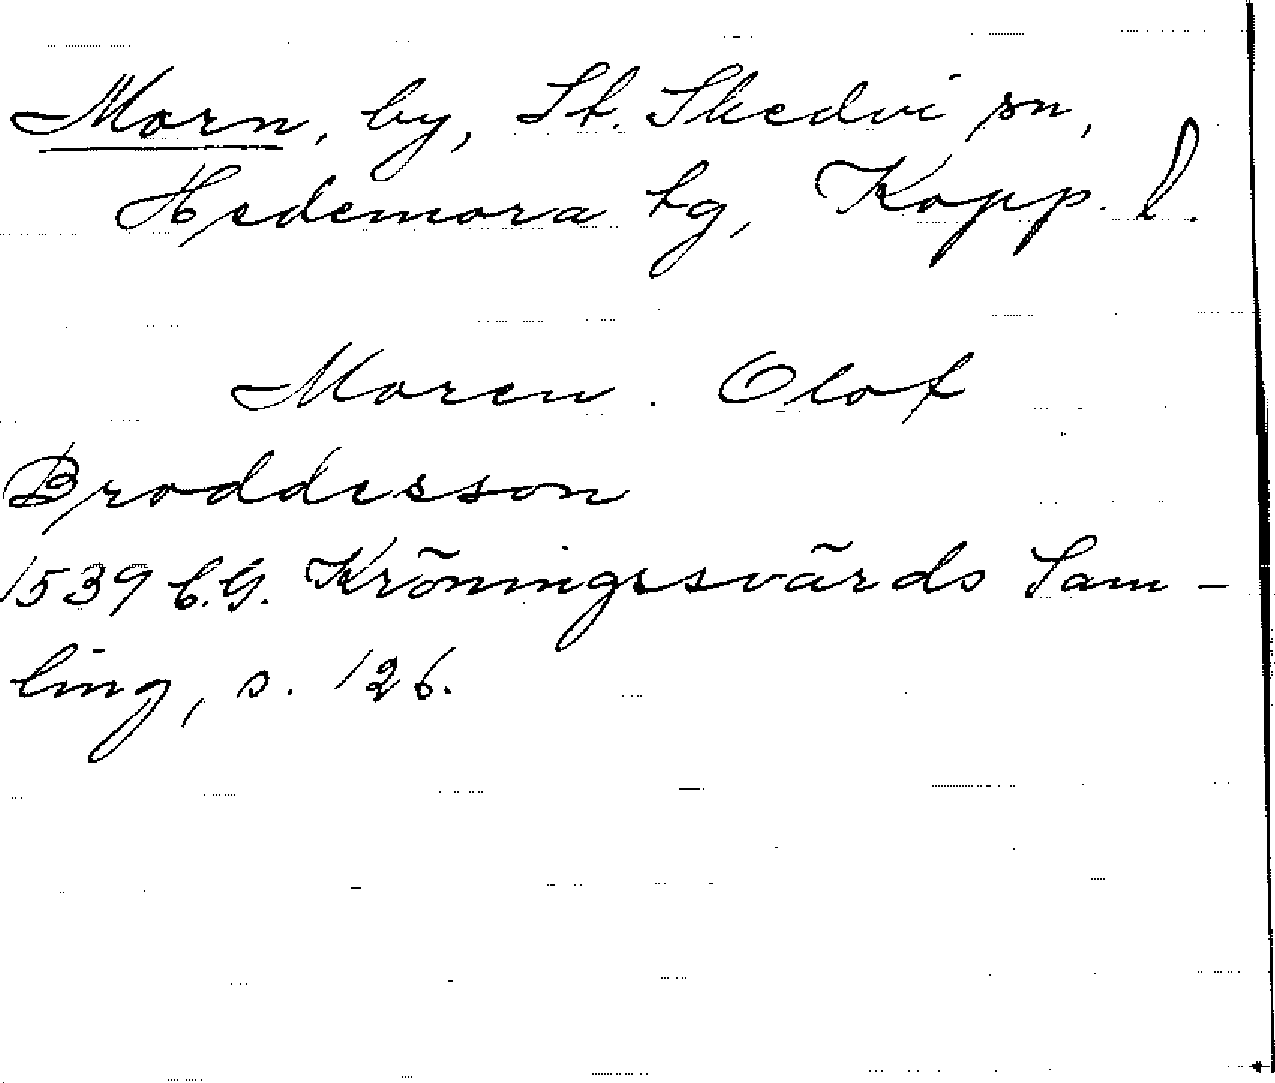 Morn, by, St. Skedvi sn,
Hedemora tg, Kopp. l.
Moren. Olof
Broddesson
1539 C.G. Kröningssvärds Sam-
ling, s. 126.